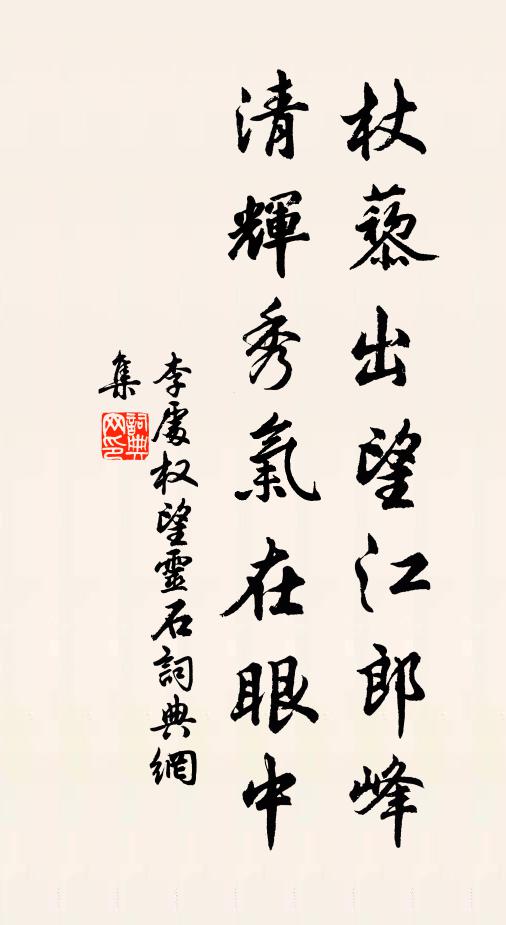 杖藜出望江郎峰
清輝秀氣在眼中
李處权望靈石詞典網
集
詞典
网印